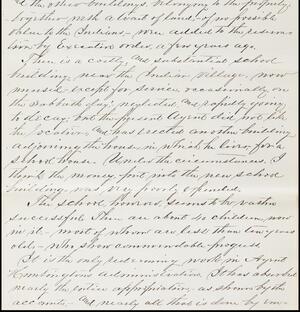 of the other buildings, belonging to the property
together with a tract of land of no possible
value to the Indians, were added to the reserva-
tion by Executive order, a few years ago.
There is a costly and substantial school
building near the Indian village, now
unused except for service occasionally on
the Sabbath day, neglected and rapidly going
to decay, but the present Agent did not like
the location and has erected another building
adjoining the house in which he lives, for a
school house. Under the circumstances, I
think the money put into the new school
building was very poorly expended.
The school however, seems to be rather
successful. There are about 40 children, now
in it - most of whom are less than ten years
old - who show commendable progress.
It is the only redeeming work in Agent
administration. It has absorbed
nearly the entire appropriation, as shown by the
accounts - and nearly all that is done by em-